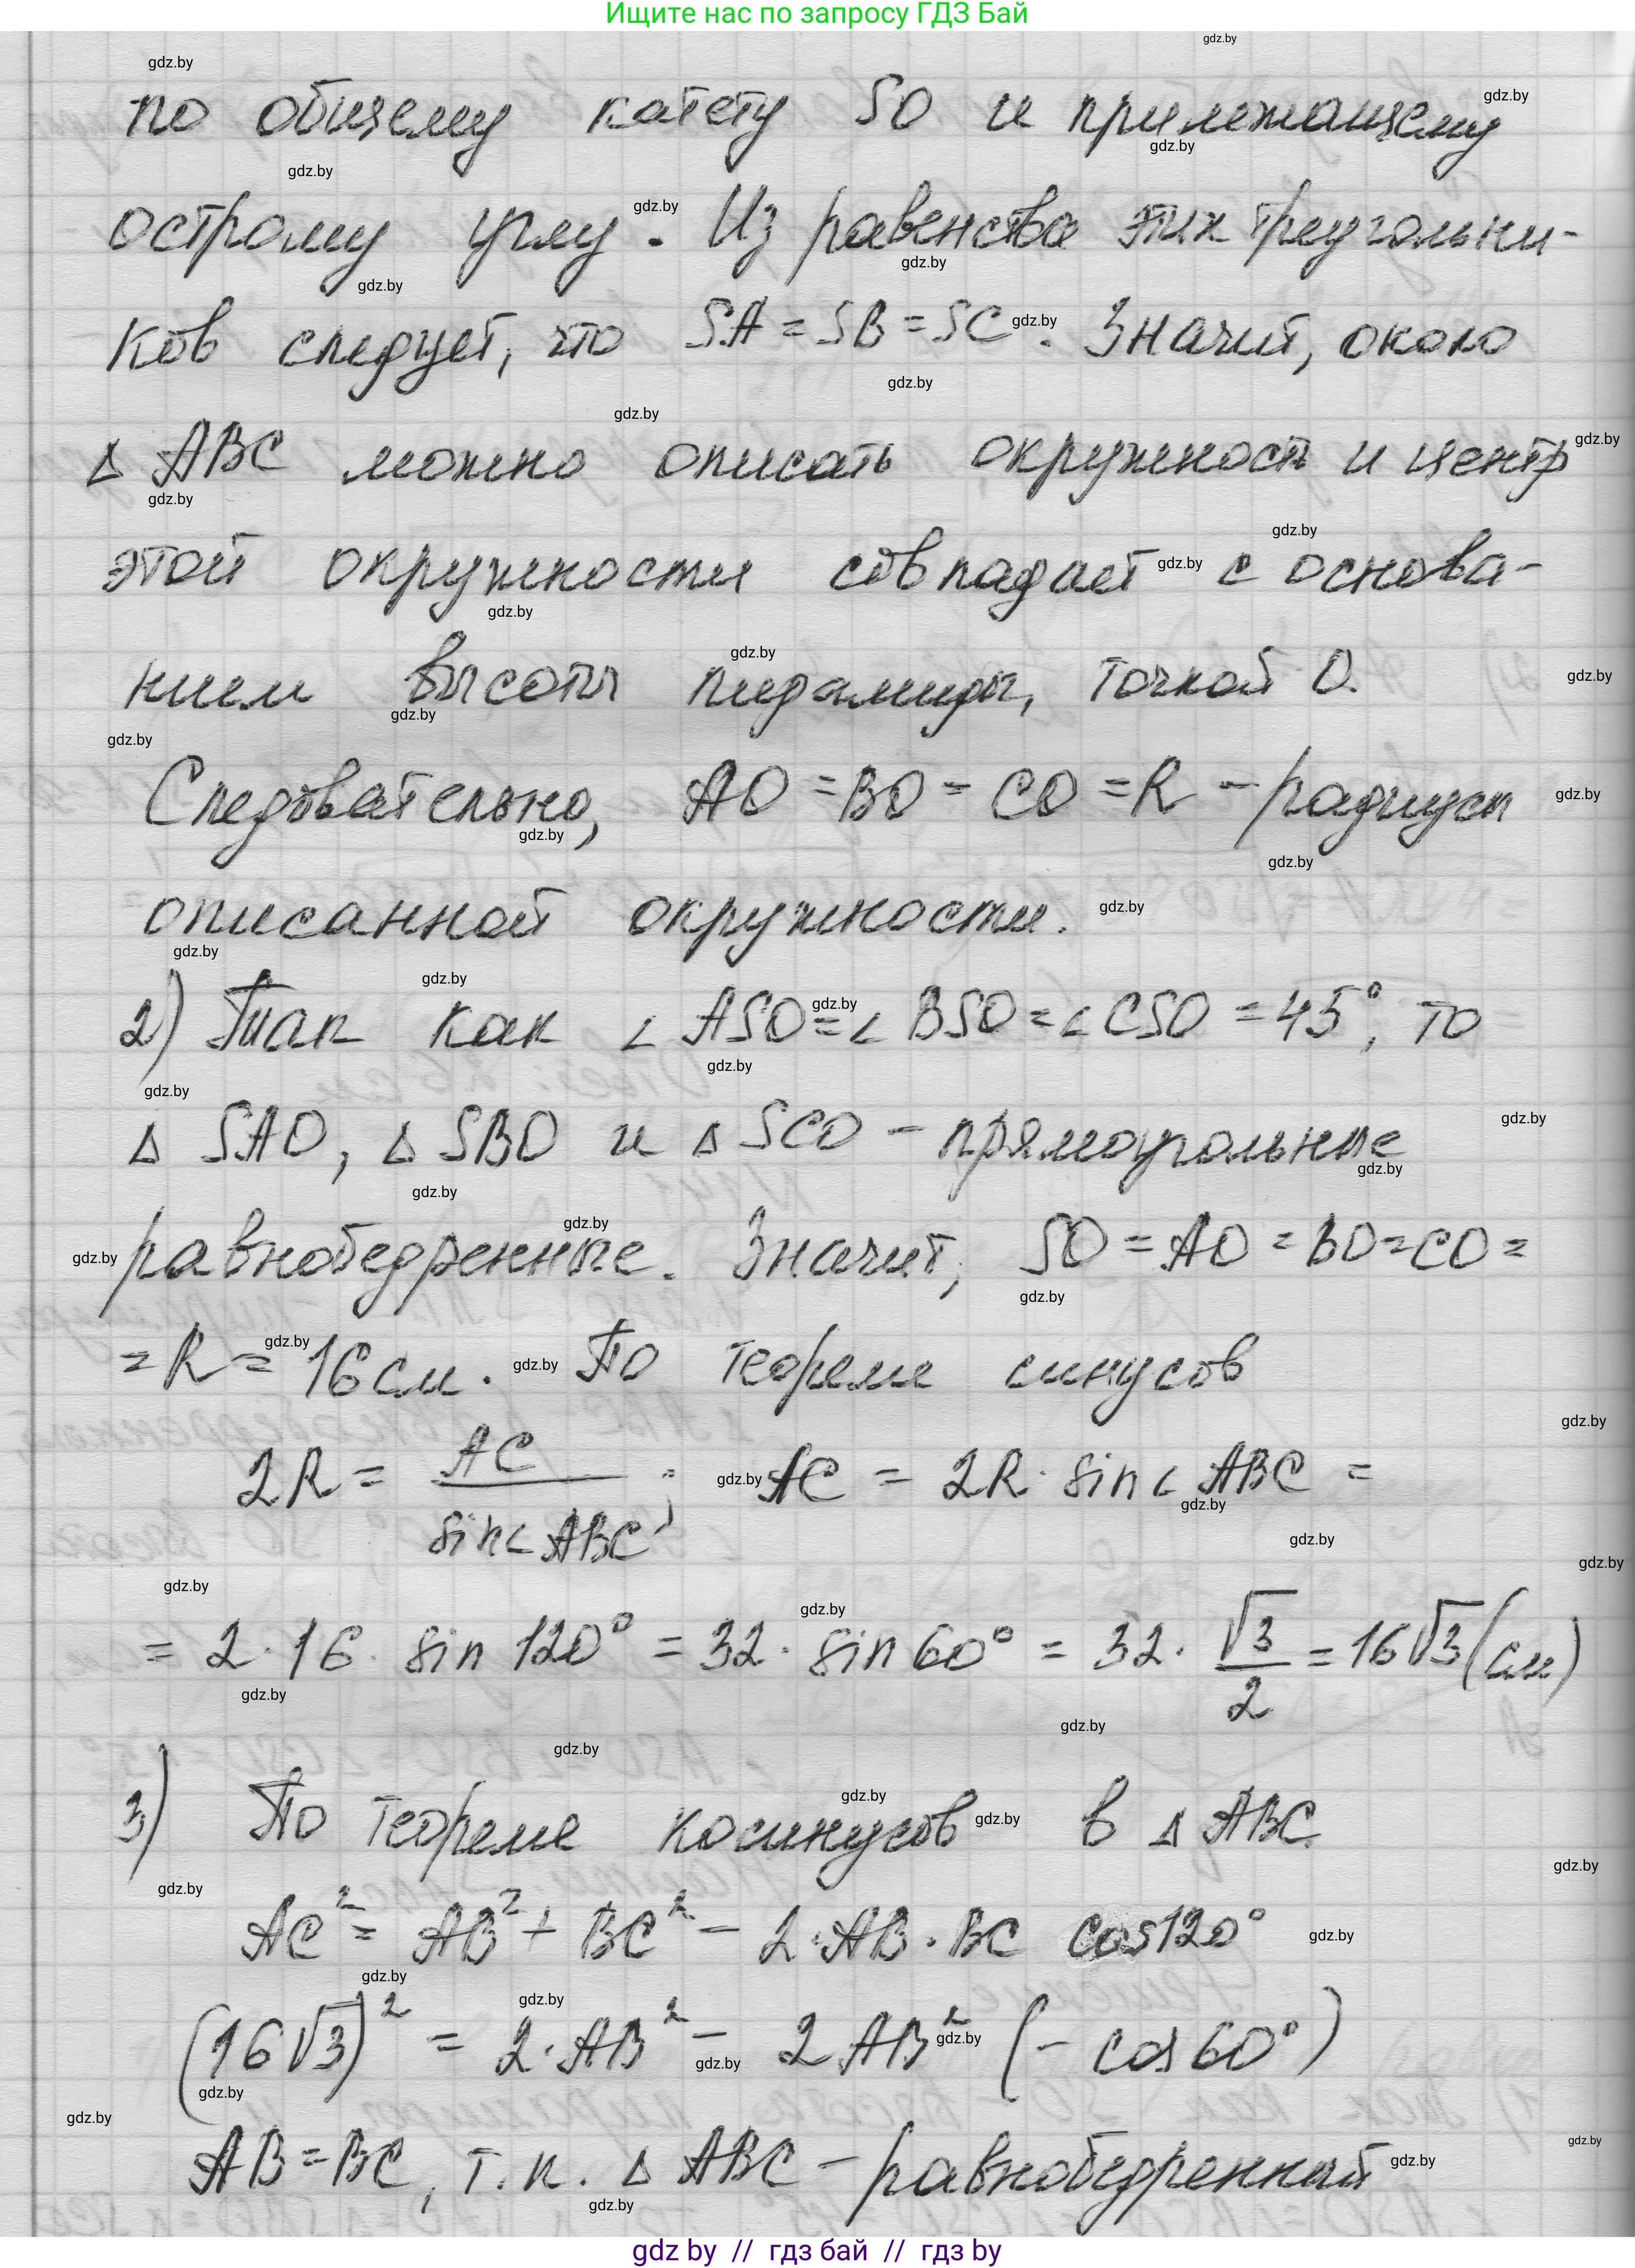 Ищите нас по запросу ГДЗ Бай
по общему катету SO и прилежащему
острому углу. Из равенства этих треугольни-
ков следует, что SA = SB = SC. Значит, около
Δ ABC можно описать окружность и центр
этой окружности совпадает с основа-
нием высоты пирамиды, точкой O.
Следовательно, AO = BO = CO = R - радиусы
описанной окружности.
2) Так как ∠ ASO = ∠ BSO = ∠ CSO = 45°, то
Δ SAO, Δ SBO и Δ SCO - прямоугольные
равнобедренные. Значит, SO = AO = BO = CO =
= R = 16 см. По теореме синусов
2R = AC / sin∠ABC; AC = 2R · sin∠ABC =
= 2 · 16 · sin 120° = 32 · sin 60° = 32 · √3/2 = 16√3 (см)
3) По теореме косинусов в Δ ABC
AC² = AB² + BC² - 2 · AB · BC cos120°
(16√3)² = 2 · AB² - 2AB² (- cos60°)
AB = BC, т.к. Δ ABC - равнобедренный
gdz by // гдз бай // гдз by